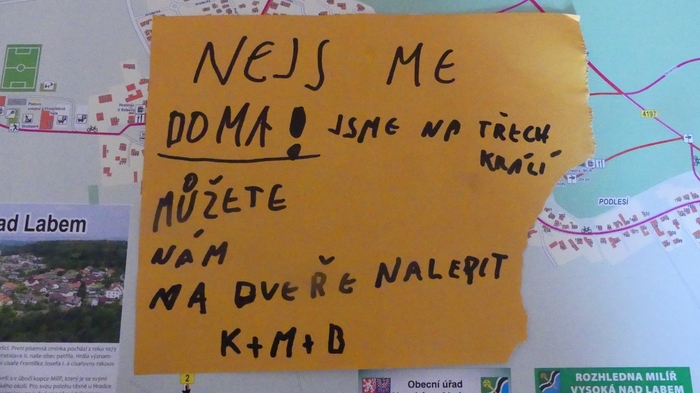 NEJS ME
DOMA! JSME NA TŘECH
KRÁLÍ
MŮŽETE
NÁM
NA DVEŘE NALEPIT
K+M+B
ad Labem
4197
PODLESÍ
2
Obecní úřad
ROZHLEDNA MILÍŘ
VYSOKÁ NAD LABEM